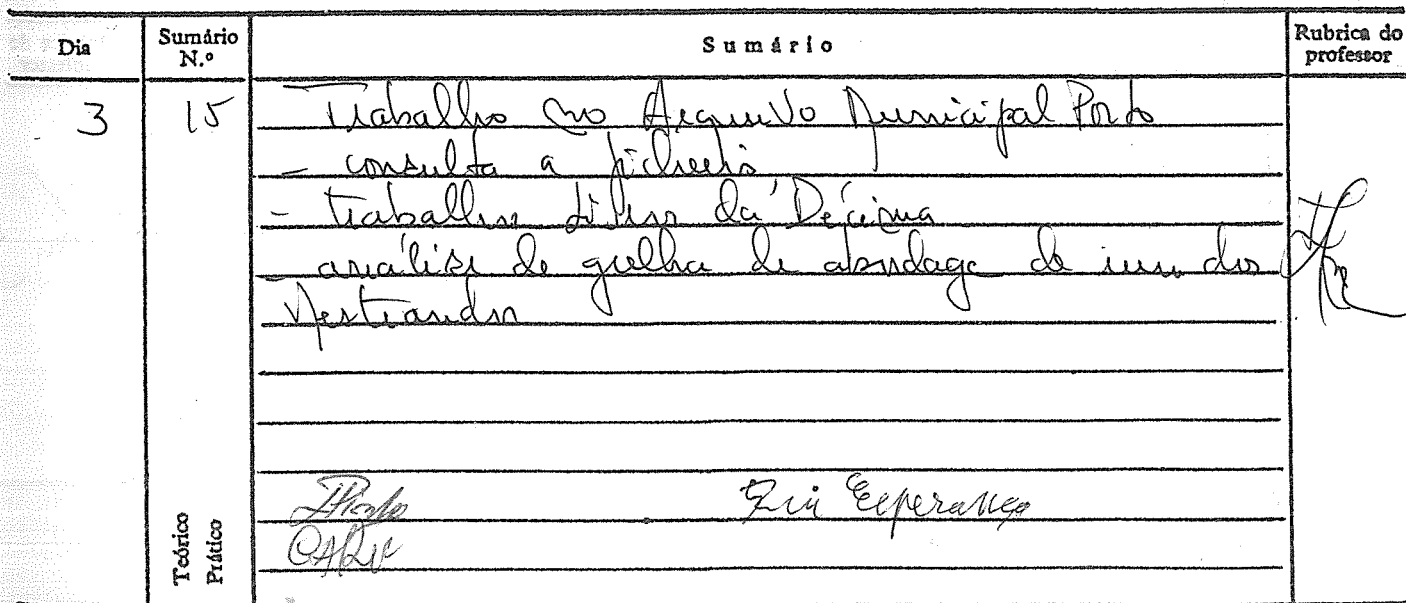 Dia
Sumário N.º
Sumário
Rubrica do professor
3
15
Trabalho no Arquivo Municipal Porto
- consulta a ficheiro
- trabalho Livro da Décima
- análise de grelha de abordage de um dos
Mestrandos
Esperança
Teórico
Prático